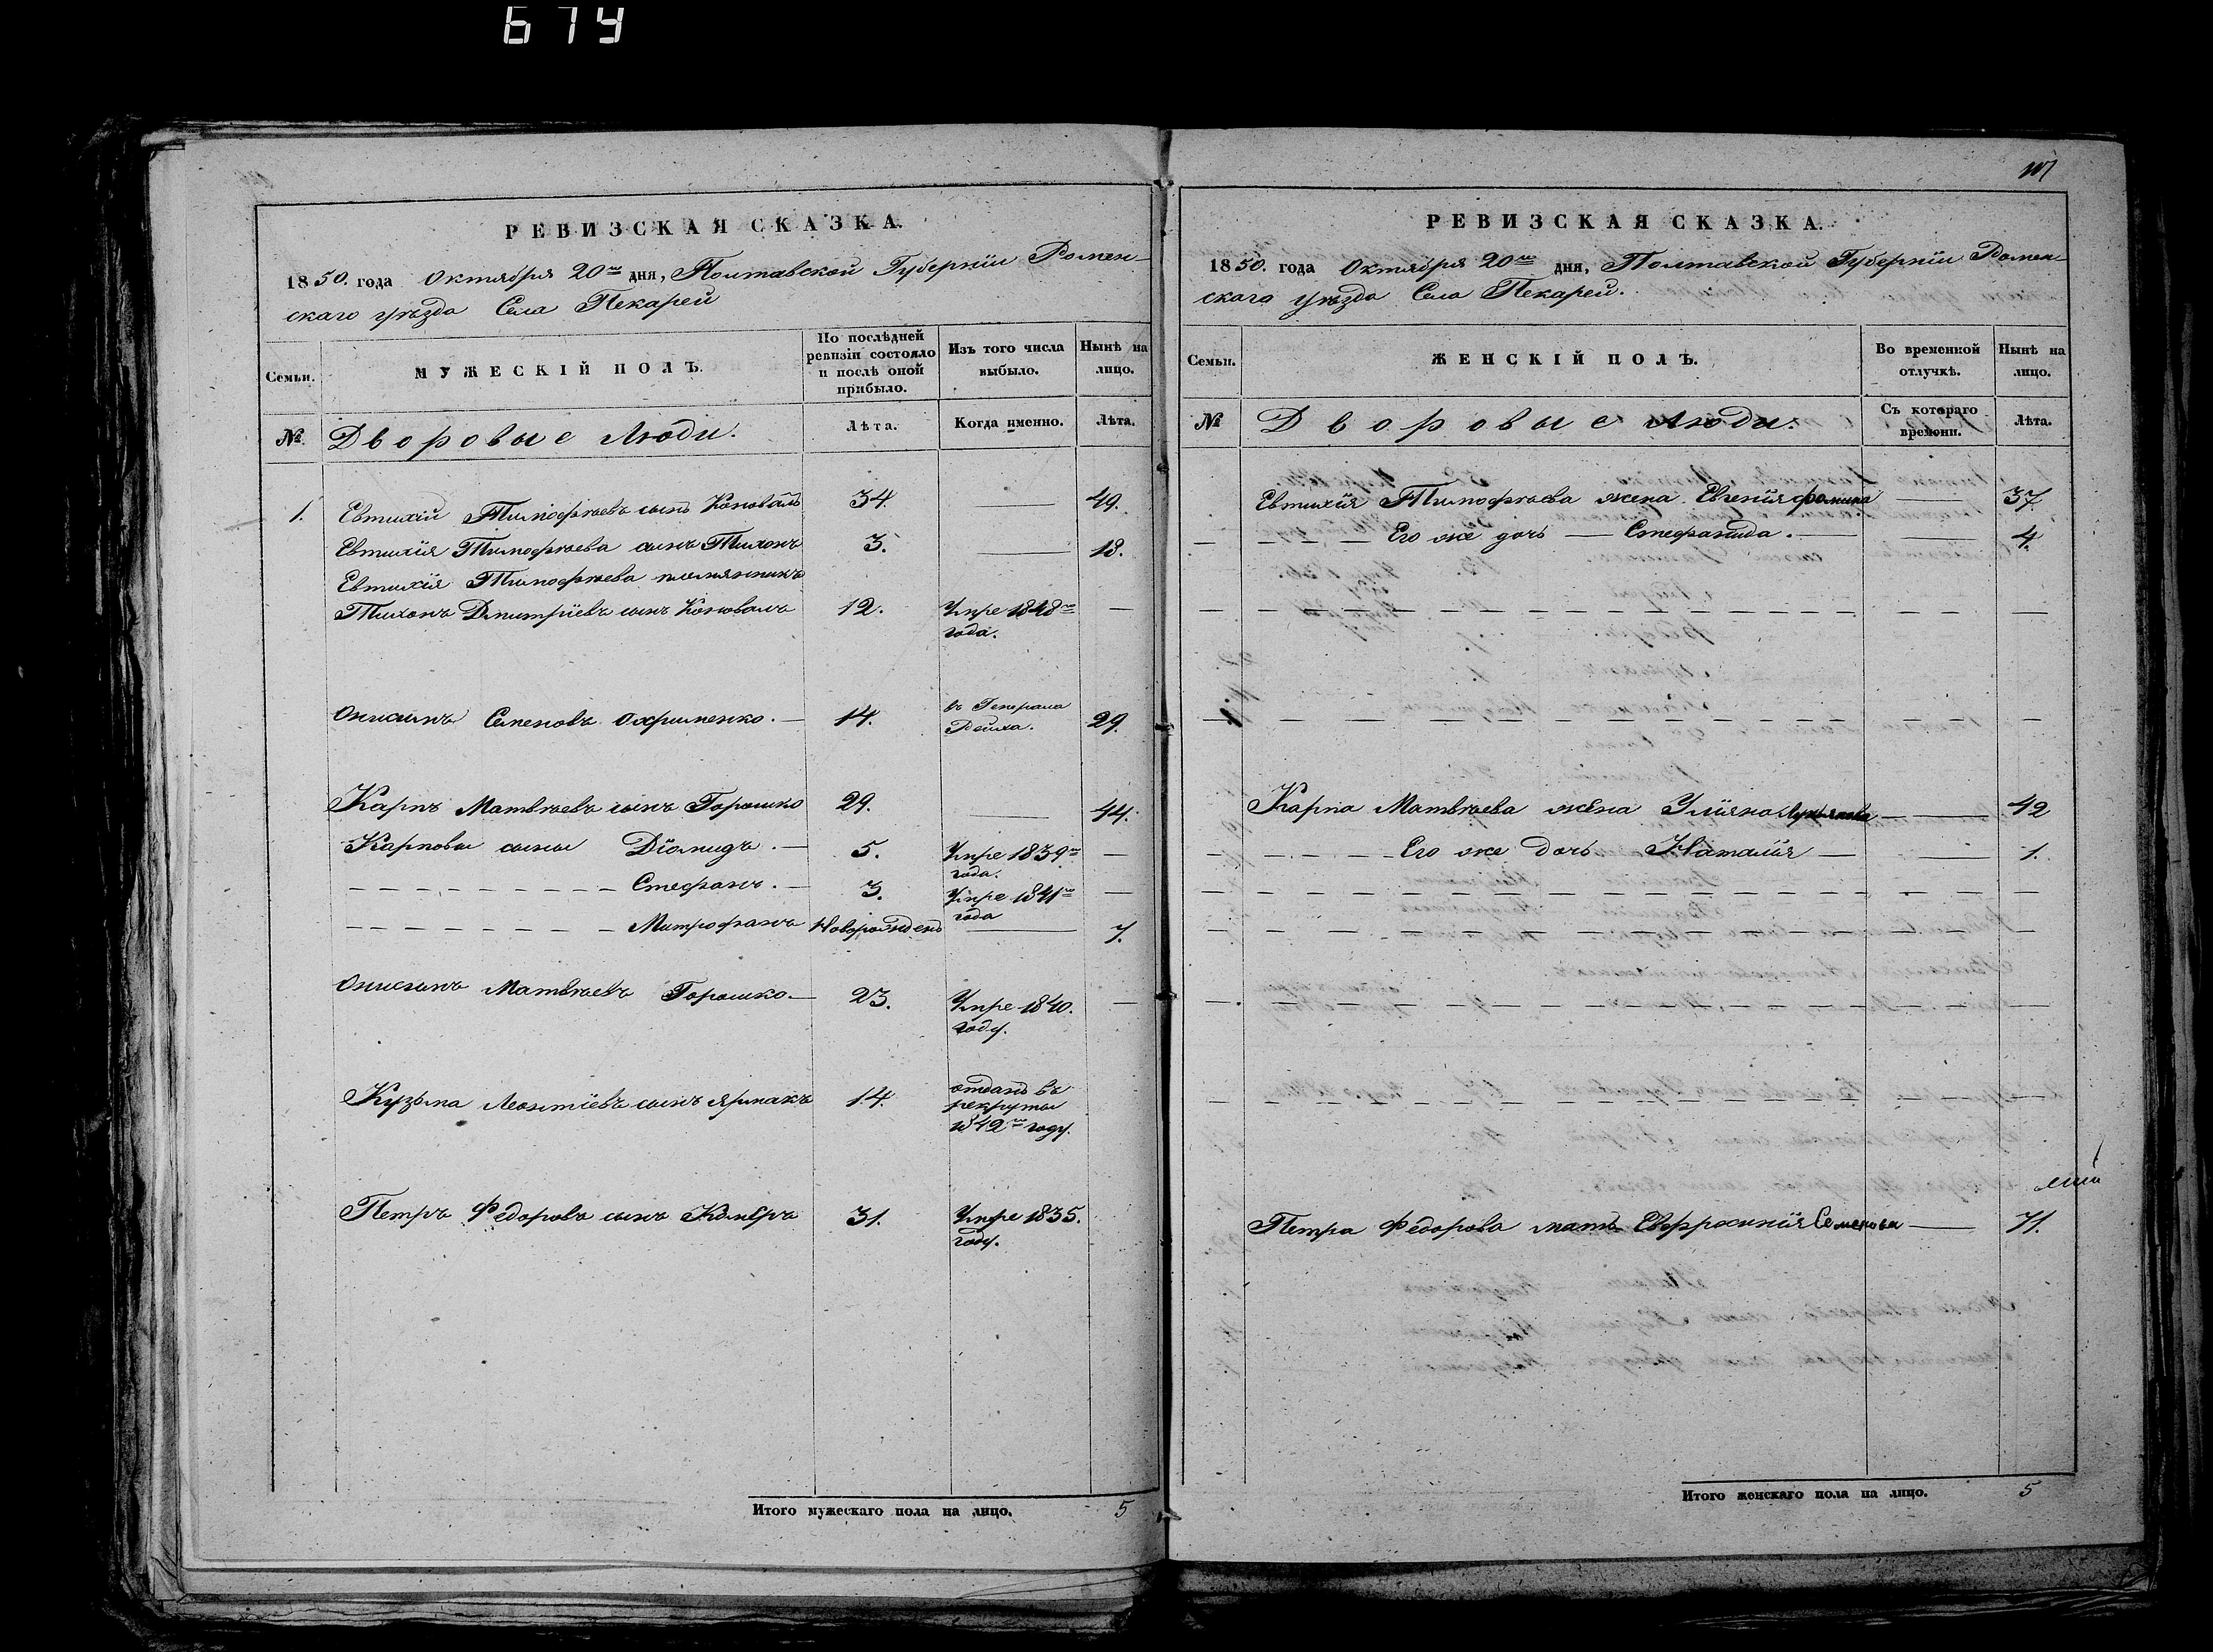 679
РЕВИЗСКАЯ СКАЗКА.
1850. года Октября 20го дня, Полтавской Губерніи Ромен-
скаго уѣзда Села Пекарей
Семьи.
МУЖЕСКІЙ ПОЛЪ.
По послѣдней ревизіи состояло и послѣ оной прибыло.
Изъ того числа выбыло.
Нынѣ на лицо.
№.
Дворовые Люди.
Лѣта.
Когда именно.
Лѣта.
1. Евтихій Тимофѣевъ сынъ Коновалъ 34. — 49.
Евтихія Тимофѣева сынъ Тихонъ 3. — 18.
Евтихія Тимофѣева племянникъ
Тихонъ Дмитріевъ сынъ Коновалъ 12. Умре 1848го —
года.
Онисимъ Семеновъ Охрименко. — 14. въ Генерала 29.
Карпъ Матвѣевъ сынъ Горошко 29. — 44.
Карповы сыны Діомидъ. — 5. Умре 1839го —
года.
— Стефанъ. — 3. Умре 1841го —
года
— Митрофанъ Новорожденъ — 7.
Онисимъ Матвѣевъ Горошко — 23. Умре 1840. —
году.
Кузьма Леонтіевъ сынъ Ярмакъ 14. отданъ въ
рекруты
1842го году.
Петръ Федоровъ сынъ 31. Умре 1835.
году.
Итого мужескаго пола на лицо. 5
РЕВИЗСКАЯ СКАЗКА.
1850. года Октября 20го дня, Полтавской Губерніи Ромен-
скаго уѣзда Села Пекарей.
Семьи.
ЖЕНСКІЙ ПОЛЪ.
Во временной отлучкѣ.
Нынѣ на лицо.
№
Дворовые люди.
Съ котораго времени.
Лѣта.
Евтихія Тимофѣева жена Евгенія Фомина — 37
Его же дочь — Стефанида. — 4.
Карпа Матвѣева жена Уліяна Лукьянова — 42
Его же дочь Наталія — 1.
Петра Федорова мать Евфросинія Семенова — 71.
Итого женскаго пола на лицо. 5